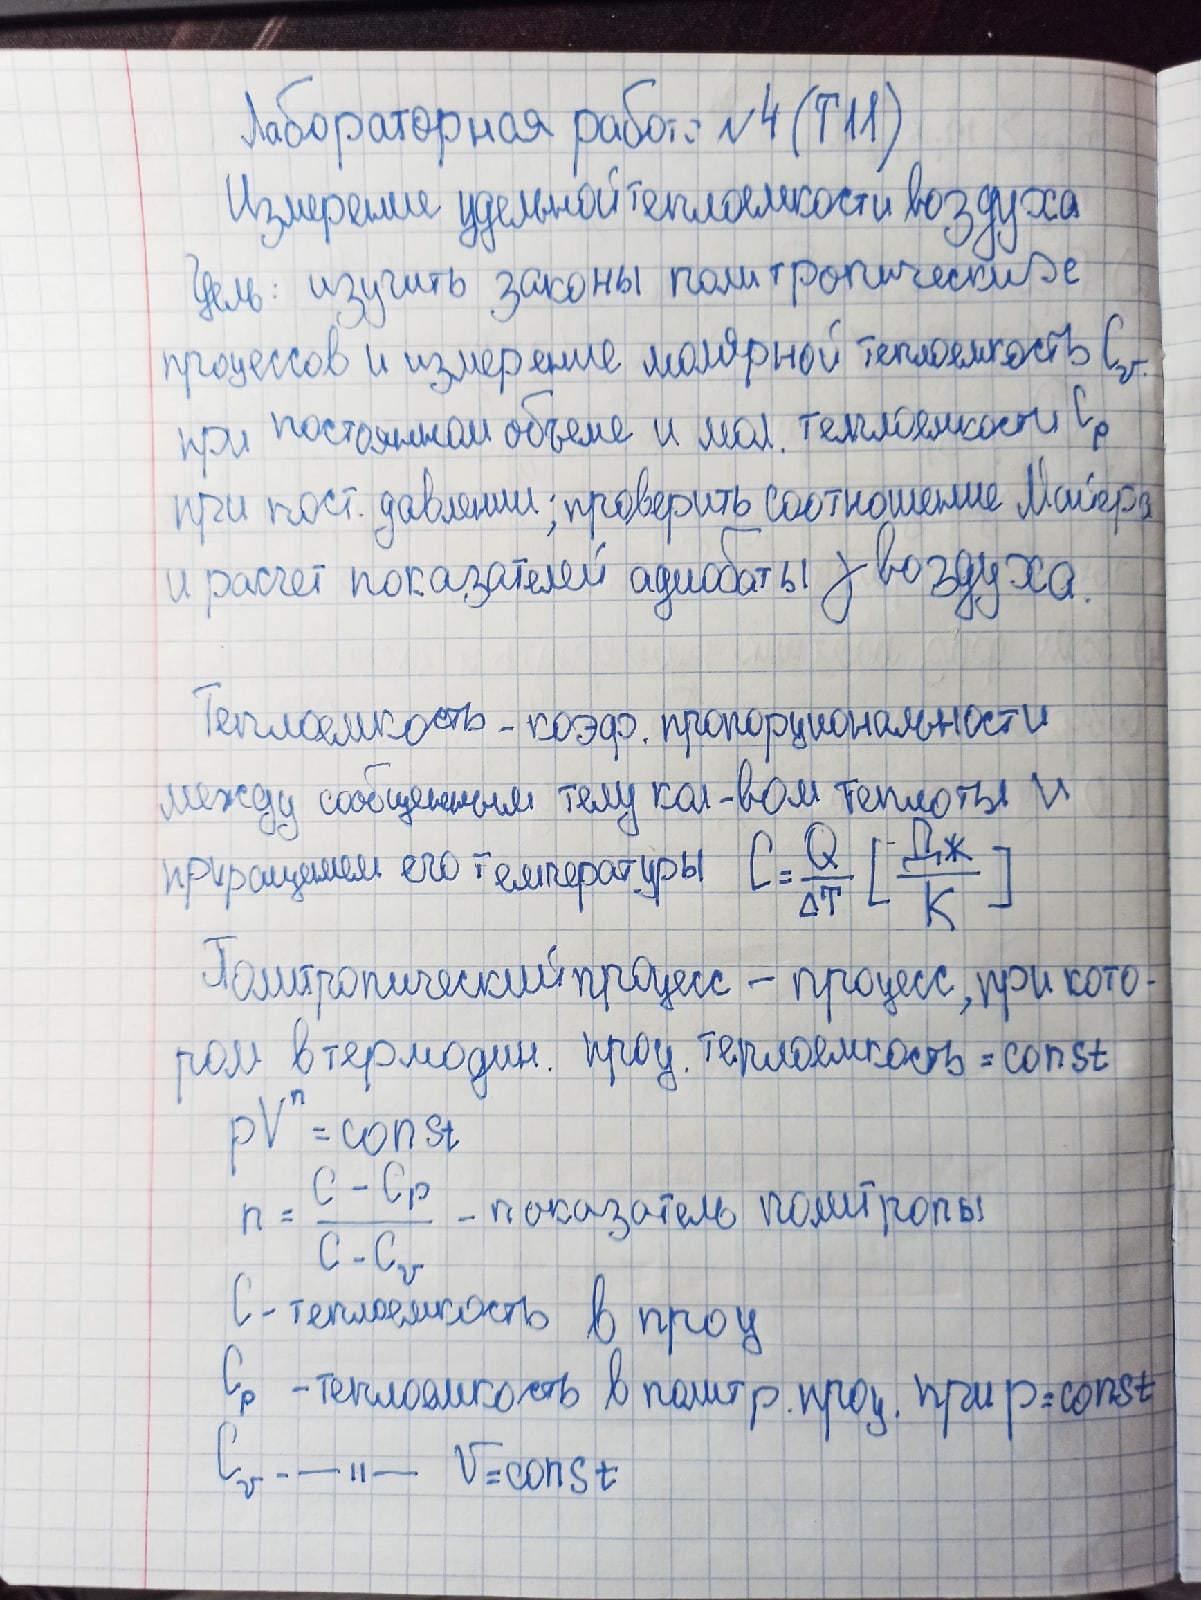 Лабораторная работа №4 (Т11)
Измерение удельной теплоемкости воздуха
Цель: изучить законы политропических
процессов и измерение молярной теплоемкость C_v
при постоянном объеме и мол. теплоемкости C_p
при пост. давлении; проверить соотношение Майера
и расчет показателей адиабаты γ воздуха.
Теплоемкость - коэф. пропорциональности
между сообщенным телу кол-вом теплоты и
приращением его температуры C = Q/ΔT [Дж/К]
Политропический процесс - процесс, при кото-
ром в термодин. проц. теплоемкость = const
pV^n = const
n = (C - C_p)/(C - C_v) - показатель политропы
C - теплоемкость в проц
C_p - теплоемкость в политр. проц. при p = const
C_v - —"— V = const